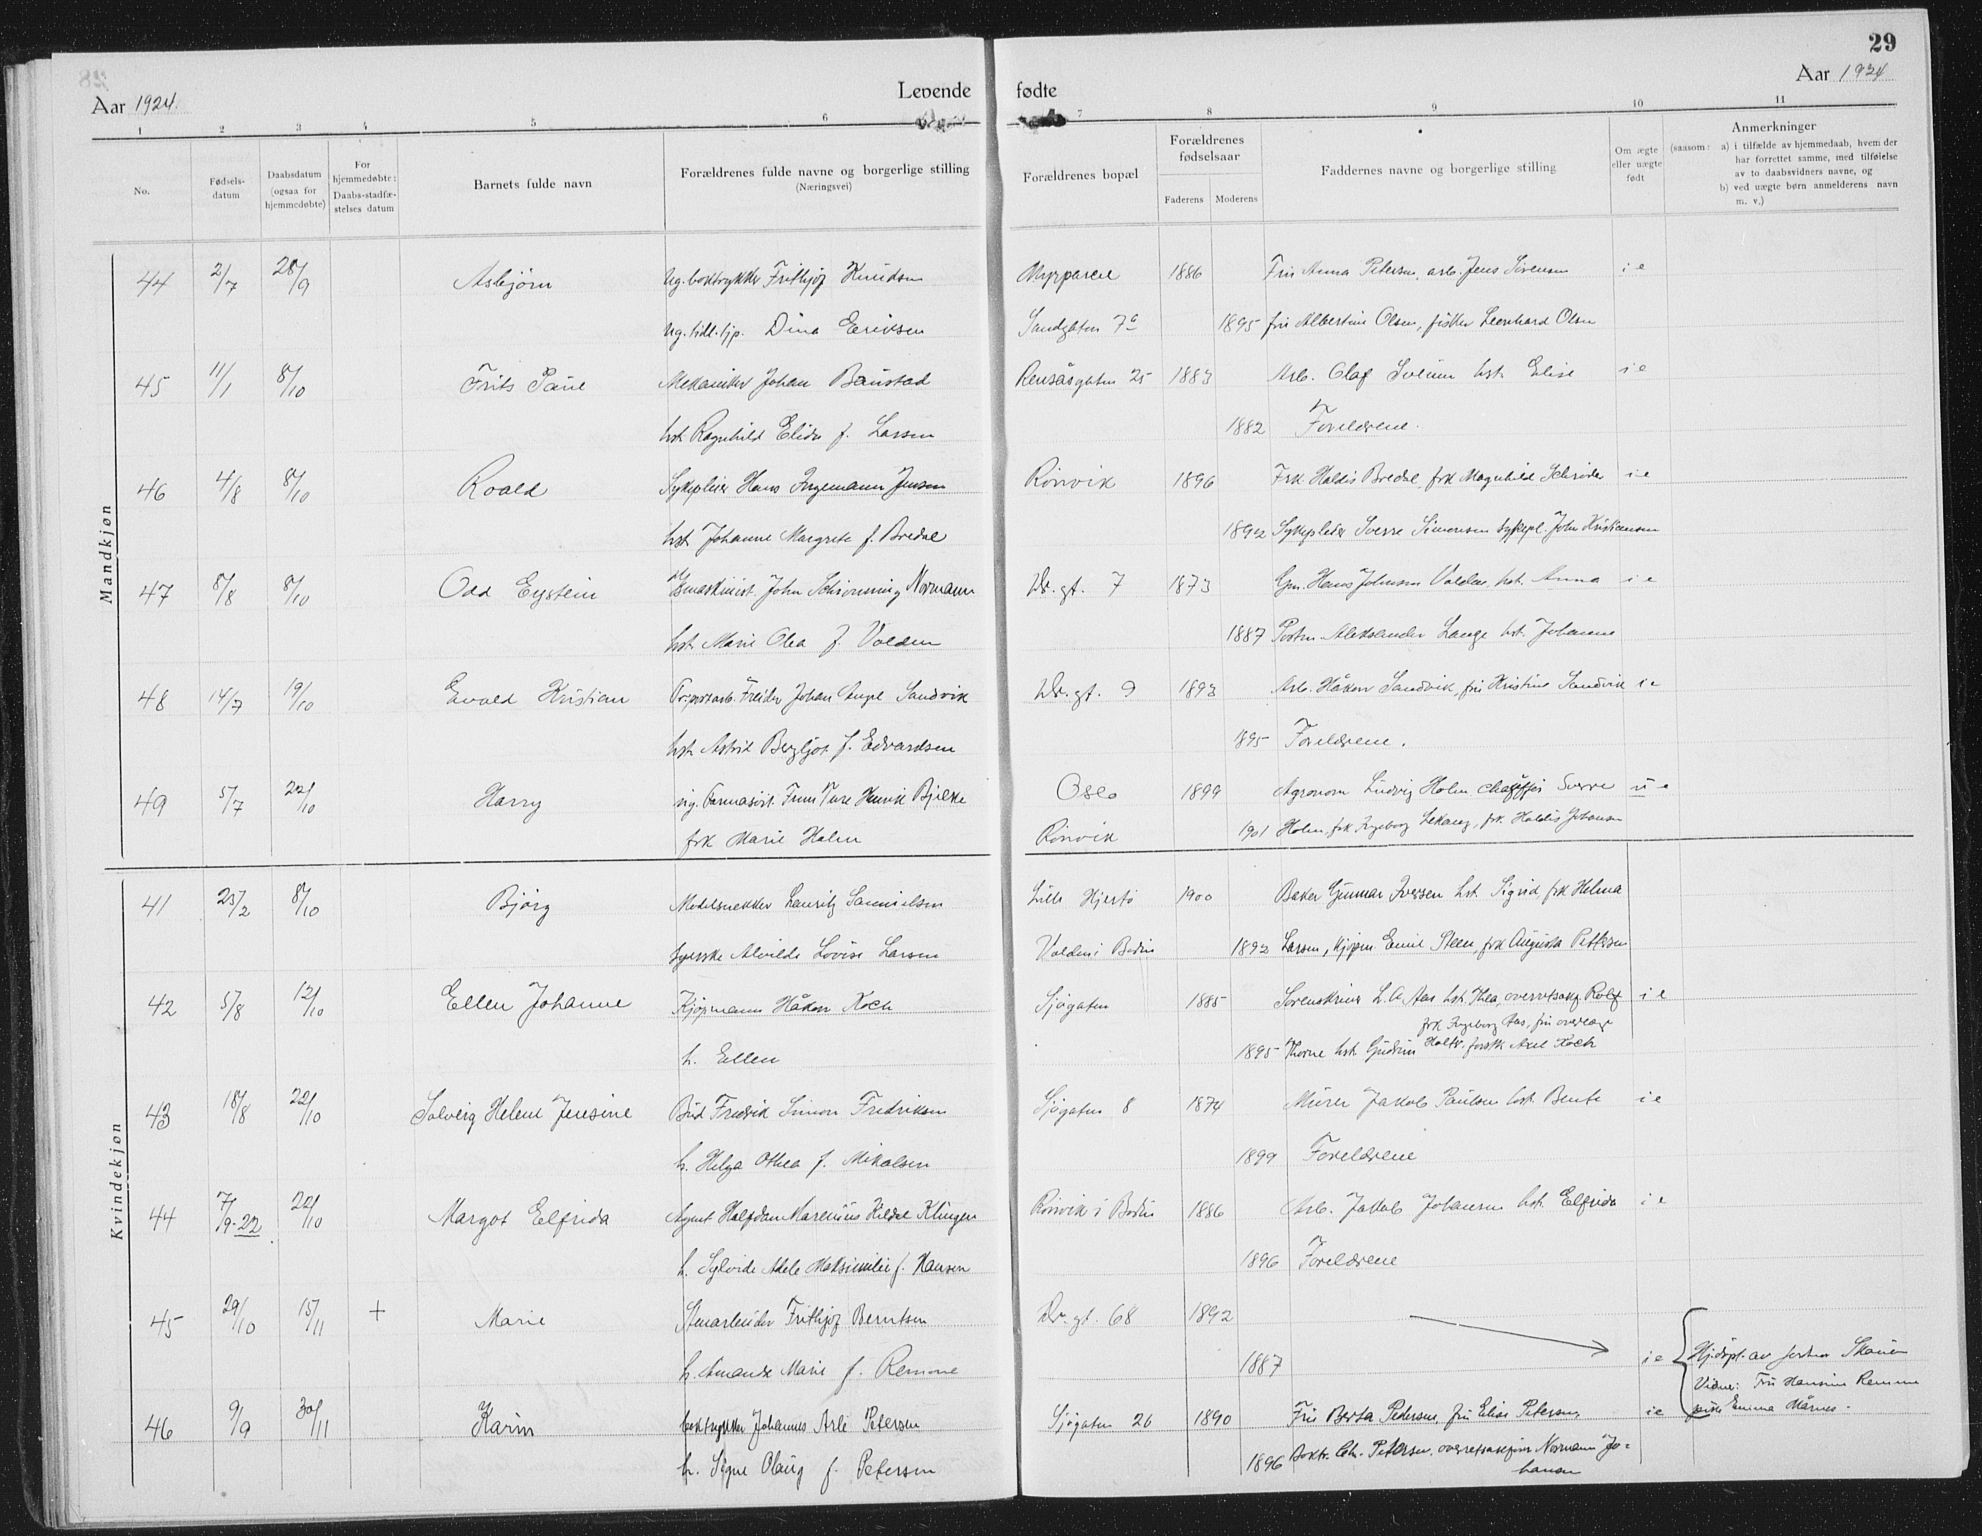 29
Aar 1924. Levende fødte Aar 1924
1 2 3 4 5 6 7 8 9 10 11
No.
Fødsels-
datum
Daabsdatum
(ogsaa for
hjemmedøbte)
For
hjemmedøbte:
Daabs-stadfæ-
stelses datum
Barnets fulde navn
Forældrenes fulde navne og borgerlige stilling
(Næringsvei)
Forældrenes bopæl
Forældrenes
fødselsaar
Faderens Moderens
Faddernes navne og borgerlige stilling
Om ægte
eller uægte
født
Anmerkninger
(saasom: a) i tilfælde av hjemmedaab, hvem der
har forrettet samme, med tilføielse
av to daabsvidners navne, og
b) ved uægte børn anmelderens navn
m. v.)
Mandkjøn
44 2/7 28/9 Asbjørn Ug. boktrykker Frithjof Knudsen Myrparcel 1886 Fru Anna Petersen, arb. Jens Sörensen i e
ug. Dina Eriksen Sandgaten 7c 1895 fru Albertine Olsen, fisker Leonhard Olsen
45 11/1 8/10 Frits Paul Mekaniker Johan Baustad Rensåsgaten 25 1883 Arb. Olaf hst. Elise i e
hst. Ragnhild Elida f. Larsen 1882 Foreldrene.
46 4/8 8/10 Roald Sykepleier Hans Ingemann Jensen Rönvik 1896 Frk Haldis Bredal, frk Magnhild Schröder i e
hst. Johanne Margrete f. Bredal 1892 Sykepleier Sverre Simonsen sykepl. John Kristiansen
47 8/8 8/10 Odd Eystein John Schrönning Normann Dr. gt. 7 1873 Gm. Hans Johnsen Valden, hst. Anna i e
hst. Marie Olea f. Volden 1887 Postm. Aleksander Lange hst. Johanne
48 14/7 19/10 Evald Kristian Johan Sandvik Dr. gt. 9 1893 Arb. Håkon Sandvik, fru Kristine Sandvik i e
hst. Astrid Bergljot f. Edvardsen 1895 Foreldrene.
49 5/7 22/10 Harry Ture Henrik Bjelke Oslo 1899 Agronom Ludvig Holm chaufför Sverre u e
frk Marie Holm Rönvik 1901 Holm, frk Ingeborg Lekang, frk. Haldis Johansen
Kvindekjøn
41 23/2 8/10 Bjørg Modelsnekker Lauritz Samuelsen Lille Hjertö 1900 Baker Gunnar Iversen hst. Sigrid, frk Helma
syerske Alvilde Lovise Larsen Volden i Bodin 1892 Larsen, kjøpm Emil Steen, frk Augusta Pettersen
42 5/8 12/10 Ellen Johanne Kjøpmann Håkon Koch Sjøgaten 1885 Sorenskriver L. A. Aas hst. Thea, overretssakf Rolf i e
frk Ingeborg Aas, fru overlæge
h. Ellen 1895 Thorne hst. Gudrun Holtv. forstk Axel Koch
43 18/8 22/10 Solveig Helene Jensine Bud Fredrik Simon Fredriksen Sjøgaten 8 1874 Murer Jakob Paulsen hst. Bente i e
h. Helga Othea f. Mikalsen 1899 Foreldrene
44 7/9-22 22/10 Margot Elfrida Agent Halfdan Marenius Hildal Klingen Rönvik i Bodin 1886 Arb. Jakob Johansen hst. Elfrida i e
h. Sylvide Adele Maksimilie f. Hansen 1896 Foreldrene
45 29/10 15/11 + Marie Stenarbeider Frithjof Berntsen Dr. gt. 68 1892
h. Amanda Marie f. Remme 1887 i e Hj.døpt av jordm Skauen
Vidner: Fru Hansine Remme
46 9/9 30/11 Karin boktrykker Johannes Arle Petersen Sjøgaten 26 1890 Fru Berta Pedersen, fru Elise Petersen, i e pike Emma Mårnes.
h. Signe Olaug f. Petersen 1896 Boktr. Chr. Petersen, overretssakfører Normann Jo-
hansen